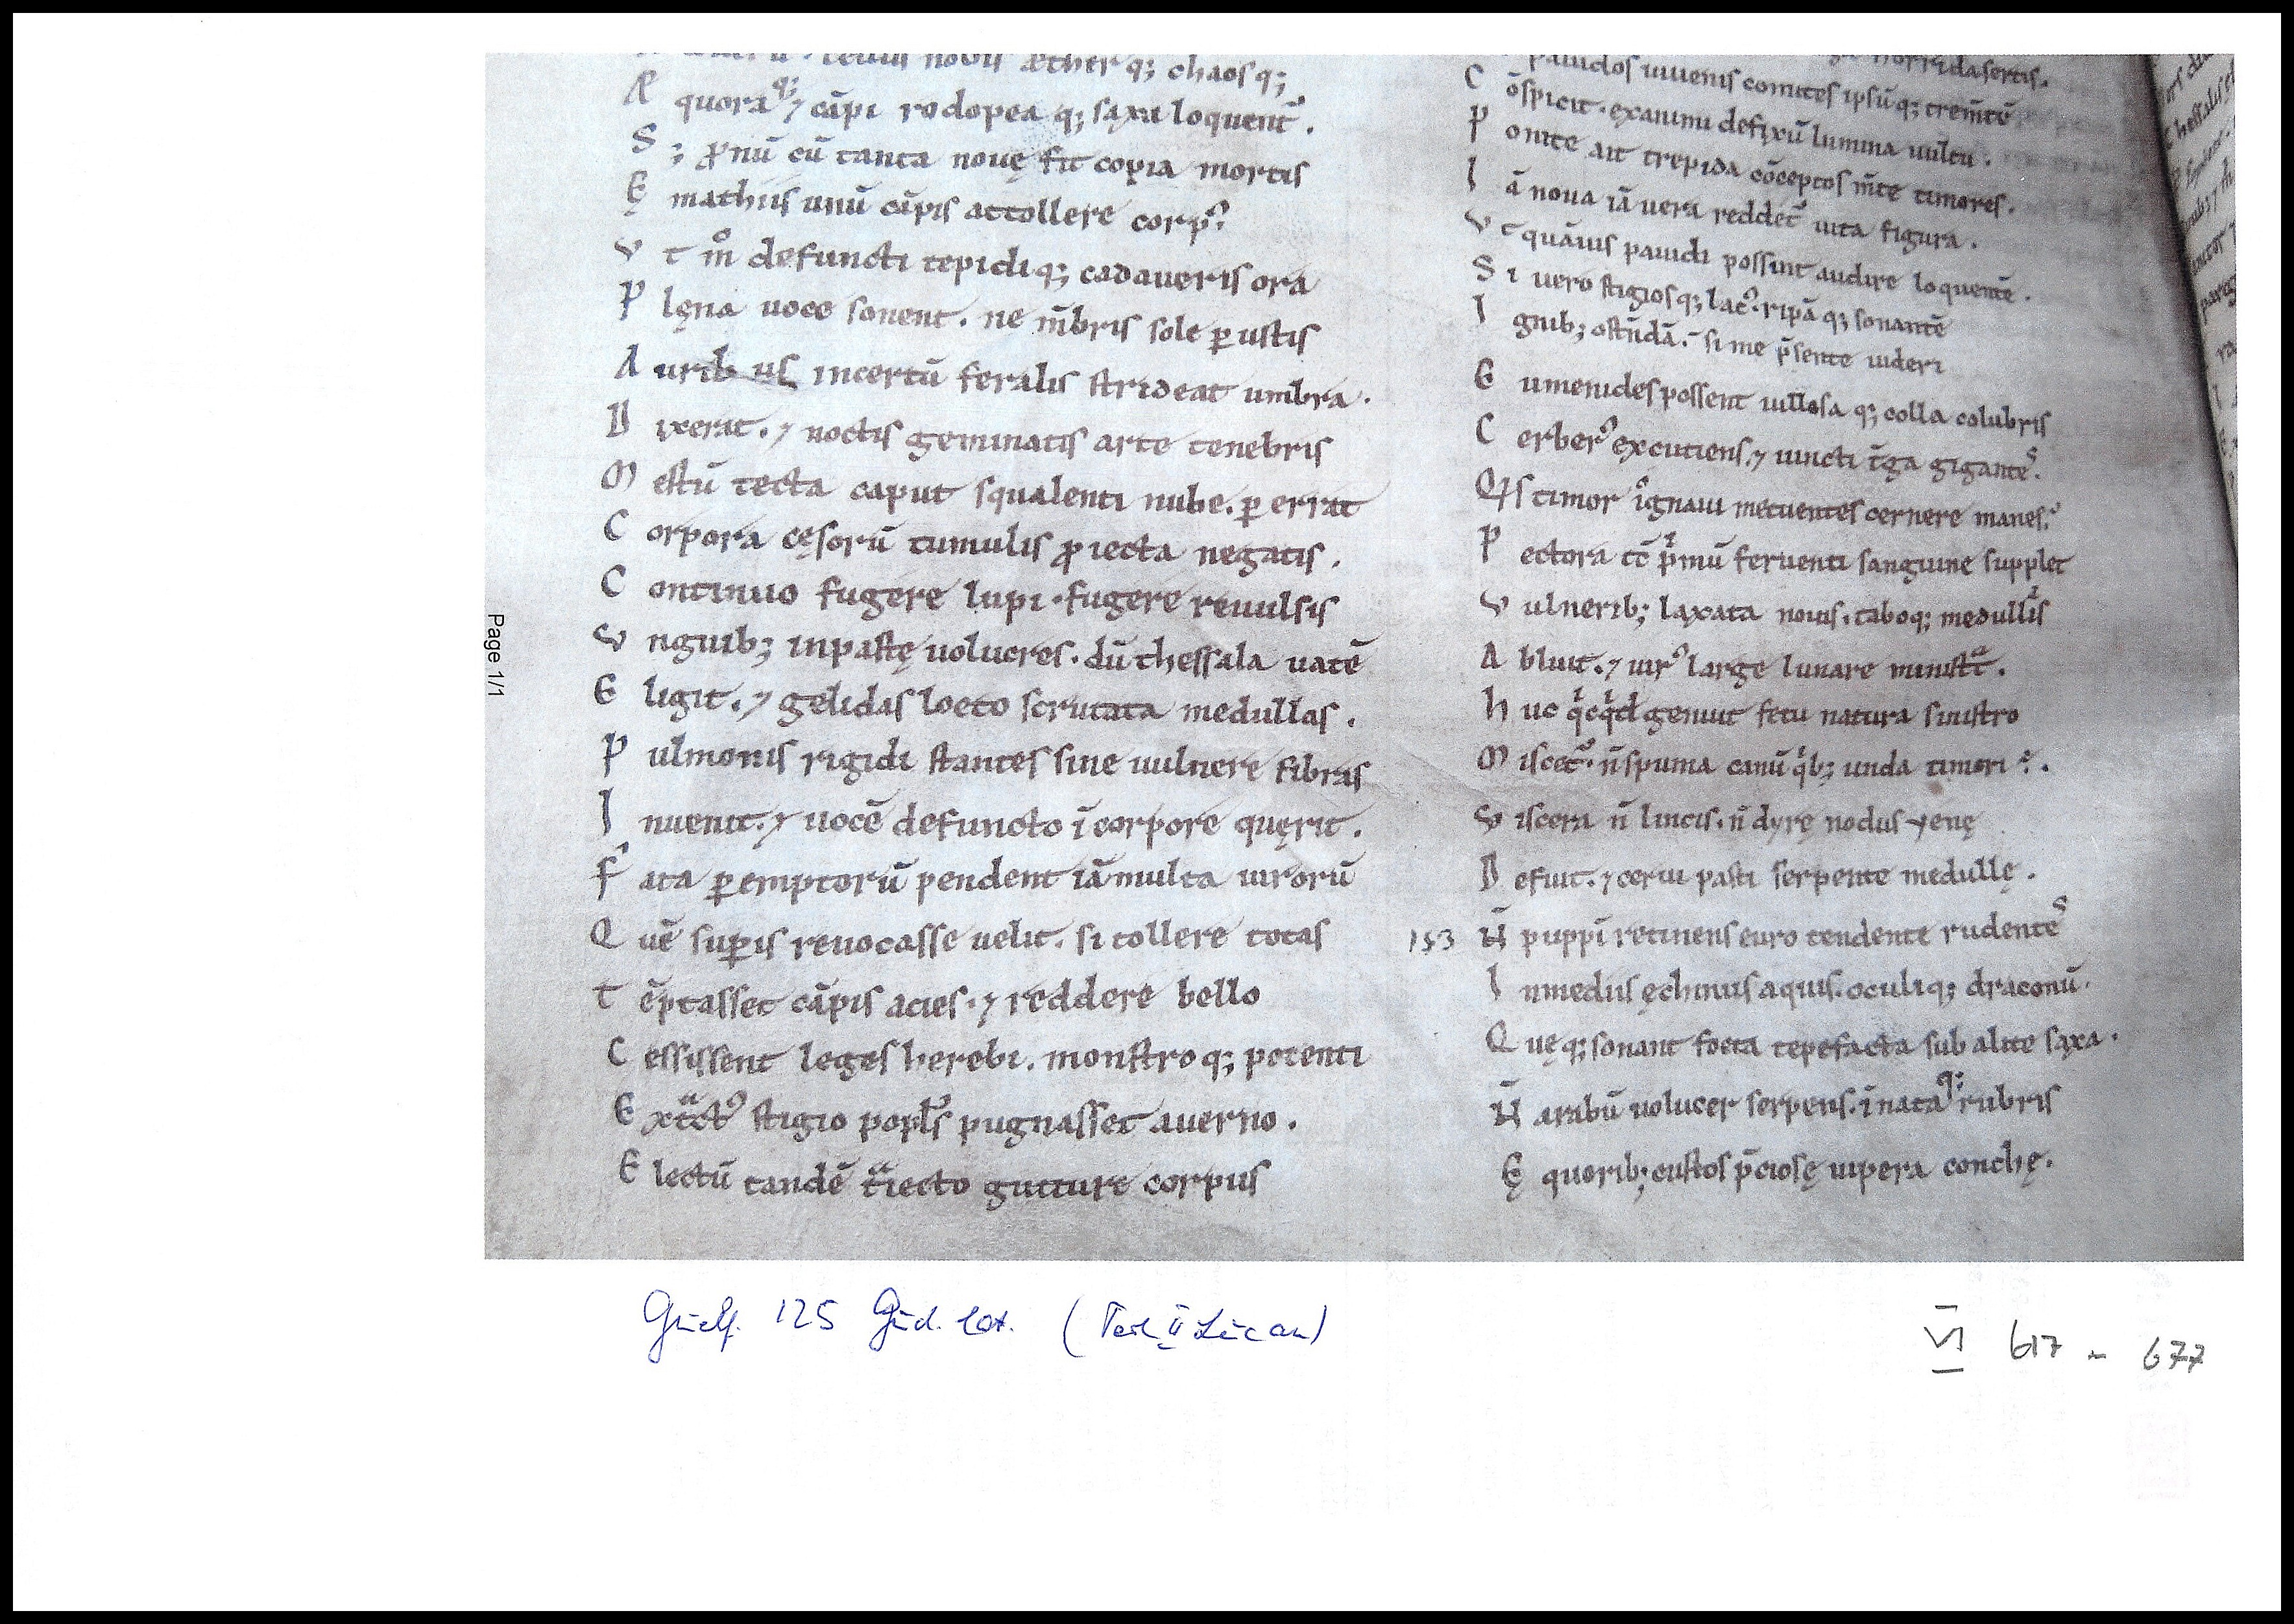 nobis ætherq; chaosq;
Æ quoraq; ⁊ cāpi rodopeaq; saxa loquent᷒.
S ; ꝓnū cū tanta nouę sit copia mortis
Ę mathiis unū cāpis attollere corpꝰ.
V t m̊ defuncti tepidiq; cadaueris ora
P lęna uoce sonent. ne m̄bris sole ꝑustis
A urib us incertū feralis strideat umbra.
D ixerat. ⁊ noctis geminatis arte tenebris
M estū tecta caput squalenti nube. ꝑ errat
C orpora cęsorū tumulis ꝓiecta negatis.
C ontinuo fugere lupi. fugere reuulsis
V nguib; inpastę uolucres. dū thessala uatē
E ligit. ⁊ gelidas loeto scrutata medullas.
P ulmonis rigidi stantes sine uulnere fibras
I nuenit. ⁊ uocē defuncto ī corpore quęrit.
F ata ꝑemptorū pendent iā multa uirorū
Q uē suꝑis reuocasse uelit. si tollere totas
T ēptasset cāpis acies. ⁊ reddere bello
C essissent leges herebi. monstroq; potenti
E xtͣctꝰ stigio popl᷒s pugnasset auerno.
E lectū tandē tͣiecto gutture corpus
horrida sertis.
pauidos iuuenis comites ipsūq; trem̄tē
C ōspicit. exanimi defixū lumina uultu.
P onite ait trepida cōceptos m̄te timores.
I ā noua iā uera reddet᷒ uita figura.
V t quāuis pauidi possint audire loquentē.
S i uero stigiosq; lacꝰ. ripāq; sonantē
I gnib; ostn̄dā. si me p̄sente uideri
E umenides possent uillosaq; colla colubris
C erberꝰ excutiens. ⁊ uincti t̄ga gigantes.
Q is timor i̊gnaui metuentes cernere manes.
P ectora tc̄ pͥmū feruenti sanguine supplet
V ulnerib; laxata nouis. taboq; medullas
A bluit. ⁊ uirꝰ large lunare ministͣt.
H uc qͥcqͥd genuit fetu natura sinistro
M iscet᷒. n̄ spuma canū qͥb; unda timori ÷.
V iscera n̄ lincis. n̄ dyrę nodus yenę
D efuit. ⁊ cerui pasti serpente medullę.
153 N̄ puppī retinens euro tendente rudentes
I nmedus ęchinus aquis. oculiq; draconū.
Q uęq; sonant foeta tepefacta sub alite saxa.
N̄ arabū uolucer serpens. īnataq; rubris
Ę quorib; custos p̄ciosę uipera conchę.
Page 1/1
Guelf. 125 Gud. lat. (Teil II Lucan)
VI 617 - 677